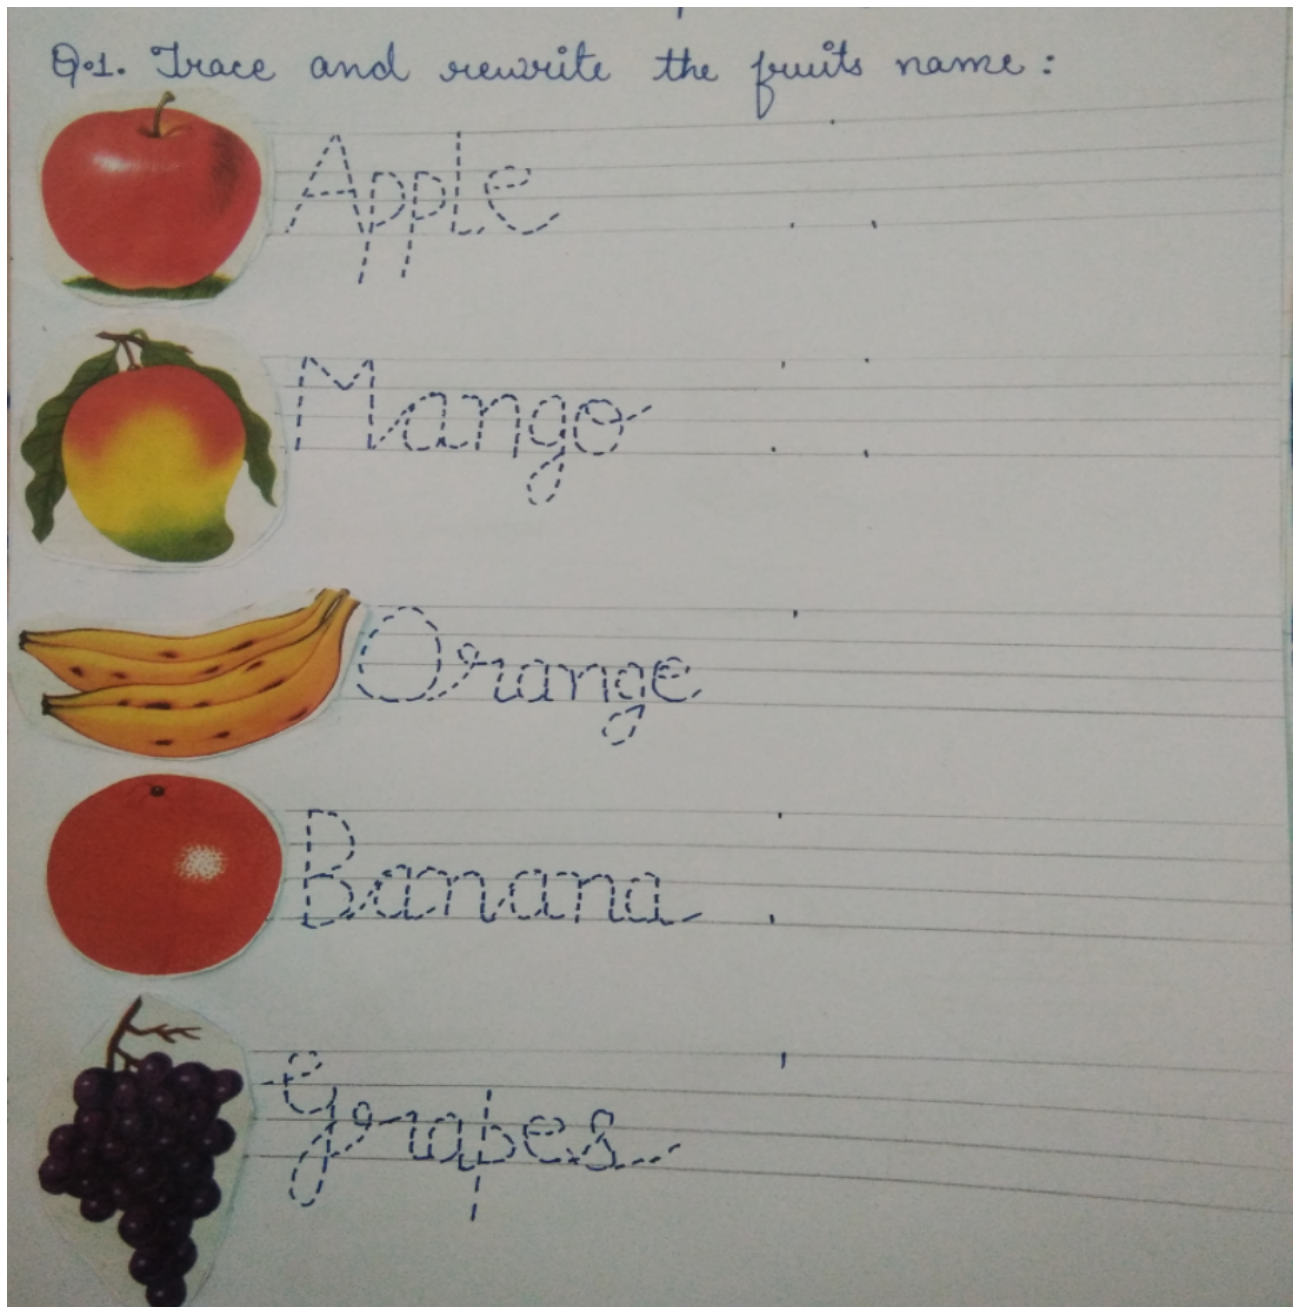 Q.1. Trace and rewrite the fruits name :
Apple
Mango
Orange
Banana
Grapes